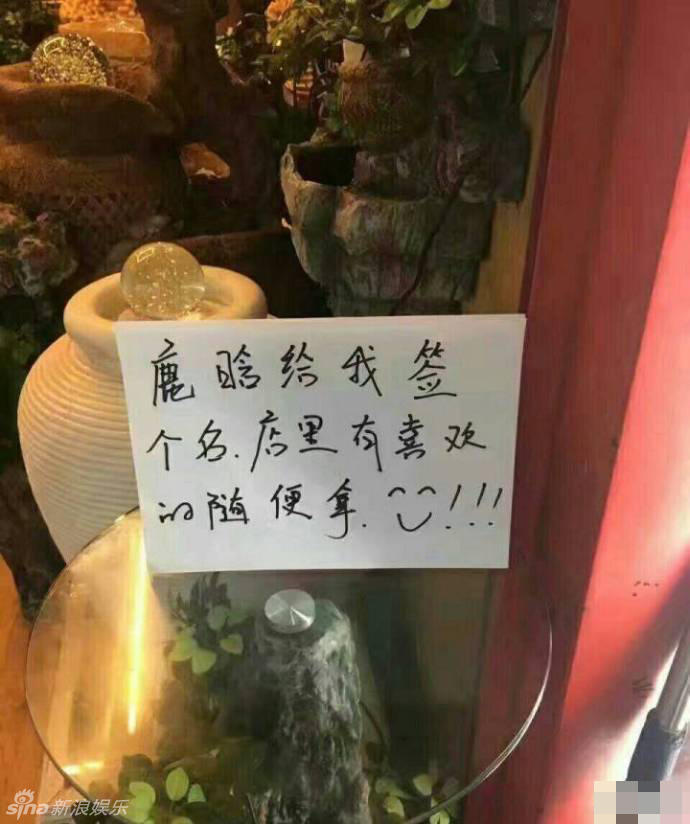 鹿晗给我签
个名.店里有喜欢
的随便拿.^‿^!!!
sina新浪娱乐